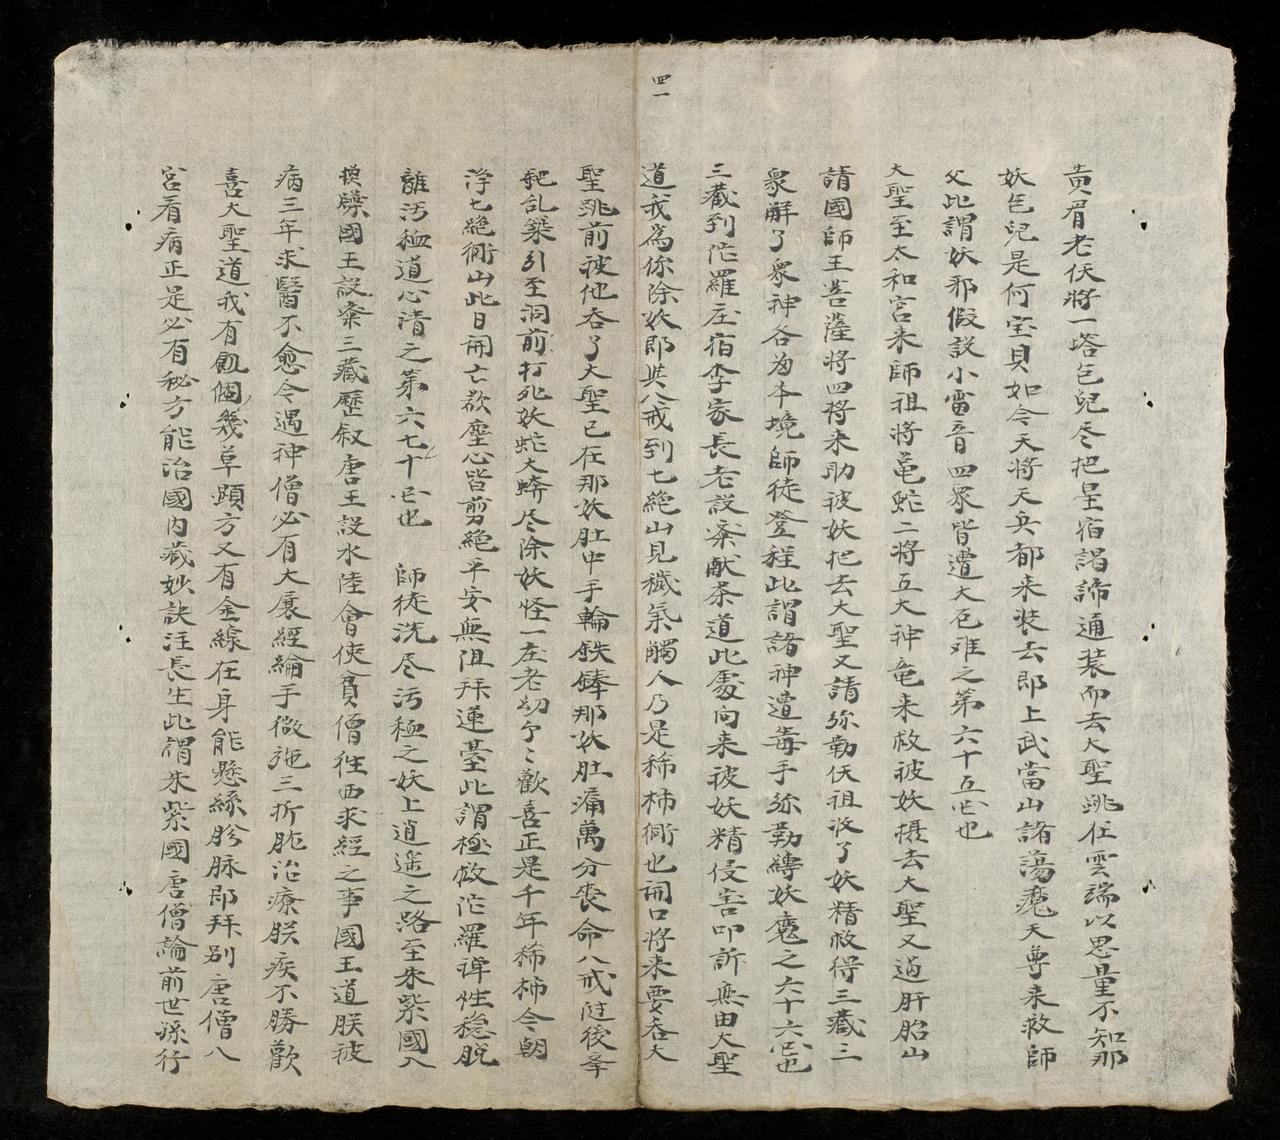 四一
黄眉老伏將一塔乞兒尽把星宿謁諦通裝而去大聖跳住雲端以思量不知那
妖乞兒是何宝貝如今天將天兵都来裝去即上武當山請蕩魔天尊来救師
父此謂妖邪假設小雷音四衆皆遭大厄难之第六十五囬也
大聖至太和宮来師祖將亀蛇二將五大神竜来救被妖摄去大聖又過肝胎山
請國師王菩薩將四將来助被妖把去大聖又請弥勒伏祖收了妖精救得三藏三
衆觧了衆神各為本境師徒登程此謂諸神遭毒手弥勒縛妖魔之六十六囬也
三藏到陀羅庄宿李家長老設斎献茶道此處向来被妖精侵害叩訴無由大聖
道我為你除妖即共八戒到七絶山見穢氣觸人乃是稀柿衕也開口將来要吞大
聖跳前被他吞了大聖已在那妖肚中手輪鉄棒那妖肚痛萬分丧命八戒㢟後举
鈀乱築引至洞前打死妖蛇大蟒尽除妖怪一庄老幼个〻歡喜正是千年稀柿今朝
淨七絶衕山此日開亡欲塵心皆剪絶平安無阻拜蓮臺此謂極救陀羅禪性穏脫
離汚穢道心清之第六七十囬也 師徒洗尽汚穢之妖上逍遥之路至朱紫國入
換牒國王設斎三藏歷叙唐王設水陸會使貧僧徃西求經之事國王道朕被
病三年求醫不愈令遇神僧必有大展經綸手微施三折肱治療朕疾不勝歡
喜大聖道我有飢個幾草頭方又有金線在身能懸絲胗脉即拜别唐僧八
宮看病正是必有秘方能治國内藏妙訣注長生此謂朱紫國唐僧論前世孫行